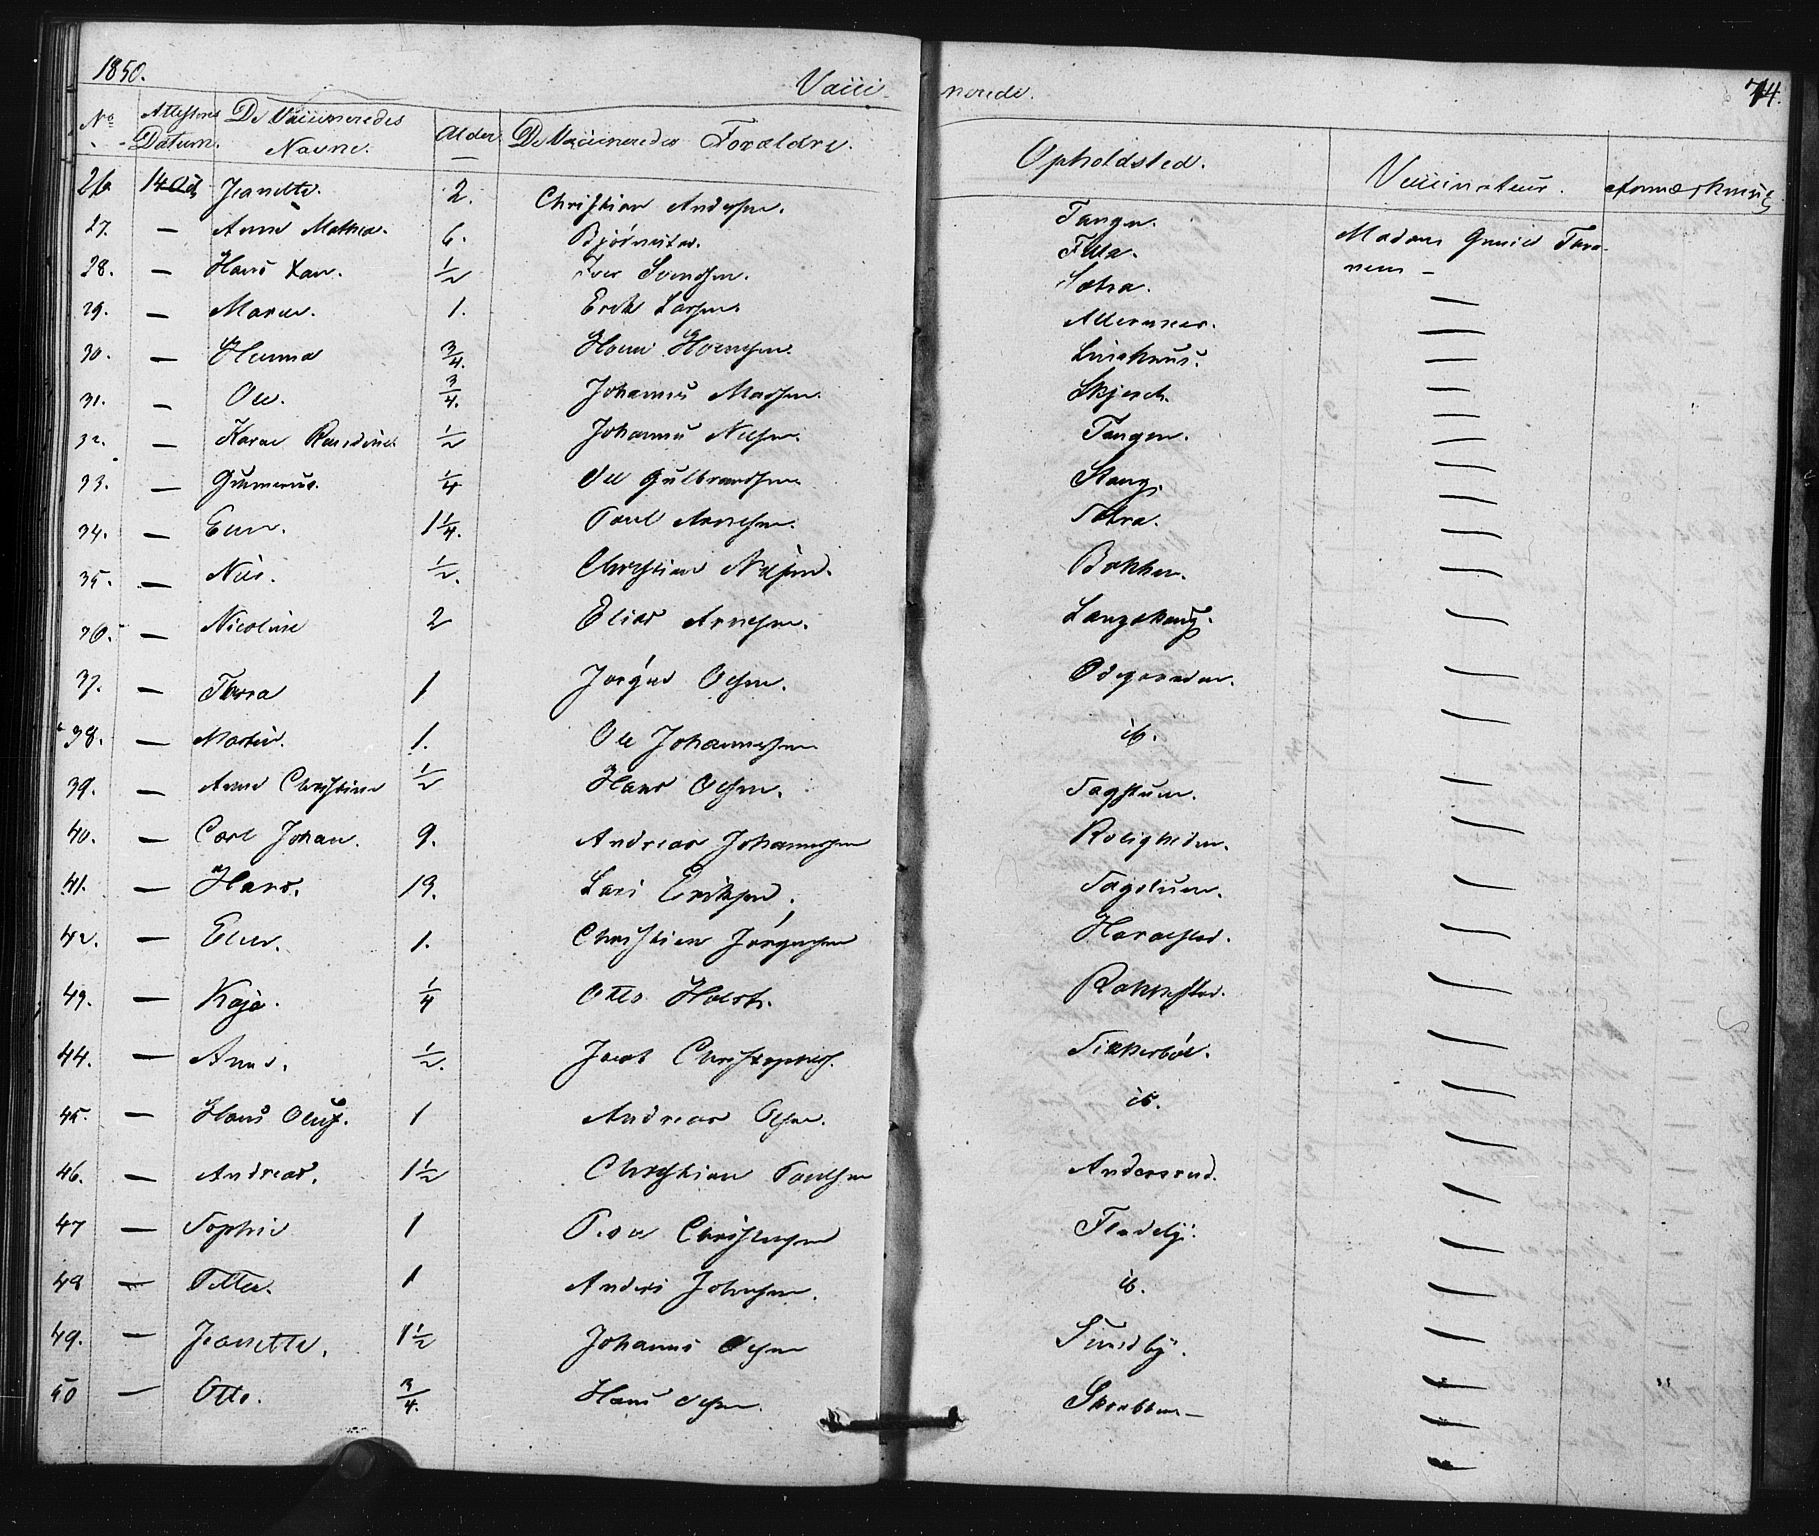 1850. Vacci nerede. 74.
No Attestens Datum. De Vaccineredes Navne. Alder De Vaccineredes Forældre. Opholdsted. Vaccinateur. Anmærkning
26. 14 Oct Jeanette. 2. Christian Andersen. Tangen. Madam
27. — Anne Mathea. 6. Bjørnestad.
28. — Hans 1/2 Iver Svendsen. Sætra. —
29. — Maren. 1. Erik Larsen. —
30. — 3/4. Hans Hansen. —
31. — Ole. 3/4. Johannes Madsen. —
32. — Karen 1/2 Johannes Nilsen. Tangen. —
33. — Gunnerius. 1/4 Ole Gulbrandsen. Stang. —
34. — Elen. 1 1/4. Paul Arnesen. Sætra. —
35. — Nils. 1/2. Christian Nilsen. Bakken. —
36. — Nicoline 2 Elias Arnesen. —
37. — Thora 1 Jørgen Olsen. Ødegaarden. —
38. — Martin. 1. Ole Johannessen ib. —
39. — Anne Christine 1/2 Hans Olsen. —
40. — Carl Johan. 9. Andreas Johannesen Roligheden. —
41. — Hans. 19. Lars Eriksen. —
42. — Elen. 1. Christian Jørgensen Haraldstad. —
43. — Kaja. 1/4 Otto Holst. Rakkestad. —
44. — Anne. 1/2. Jacob Christophers. —
45. — Hans Oluf. 1 Andreas Olsen. ib. —
46. — Andreas. 1 1/2 Christian Paulsen Andersrud. —
47 — Sophie 1 Christensen Fladeby. —
48 — Petter. 1 Anders Johnsen. ib. —
49. — Jeanette. 1 1/2 Johannes Olsen Sundby. —
50 — Otto. 3/4. Hans Olsen. —